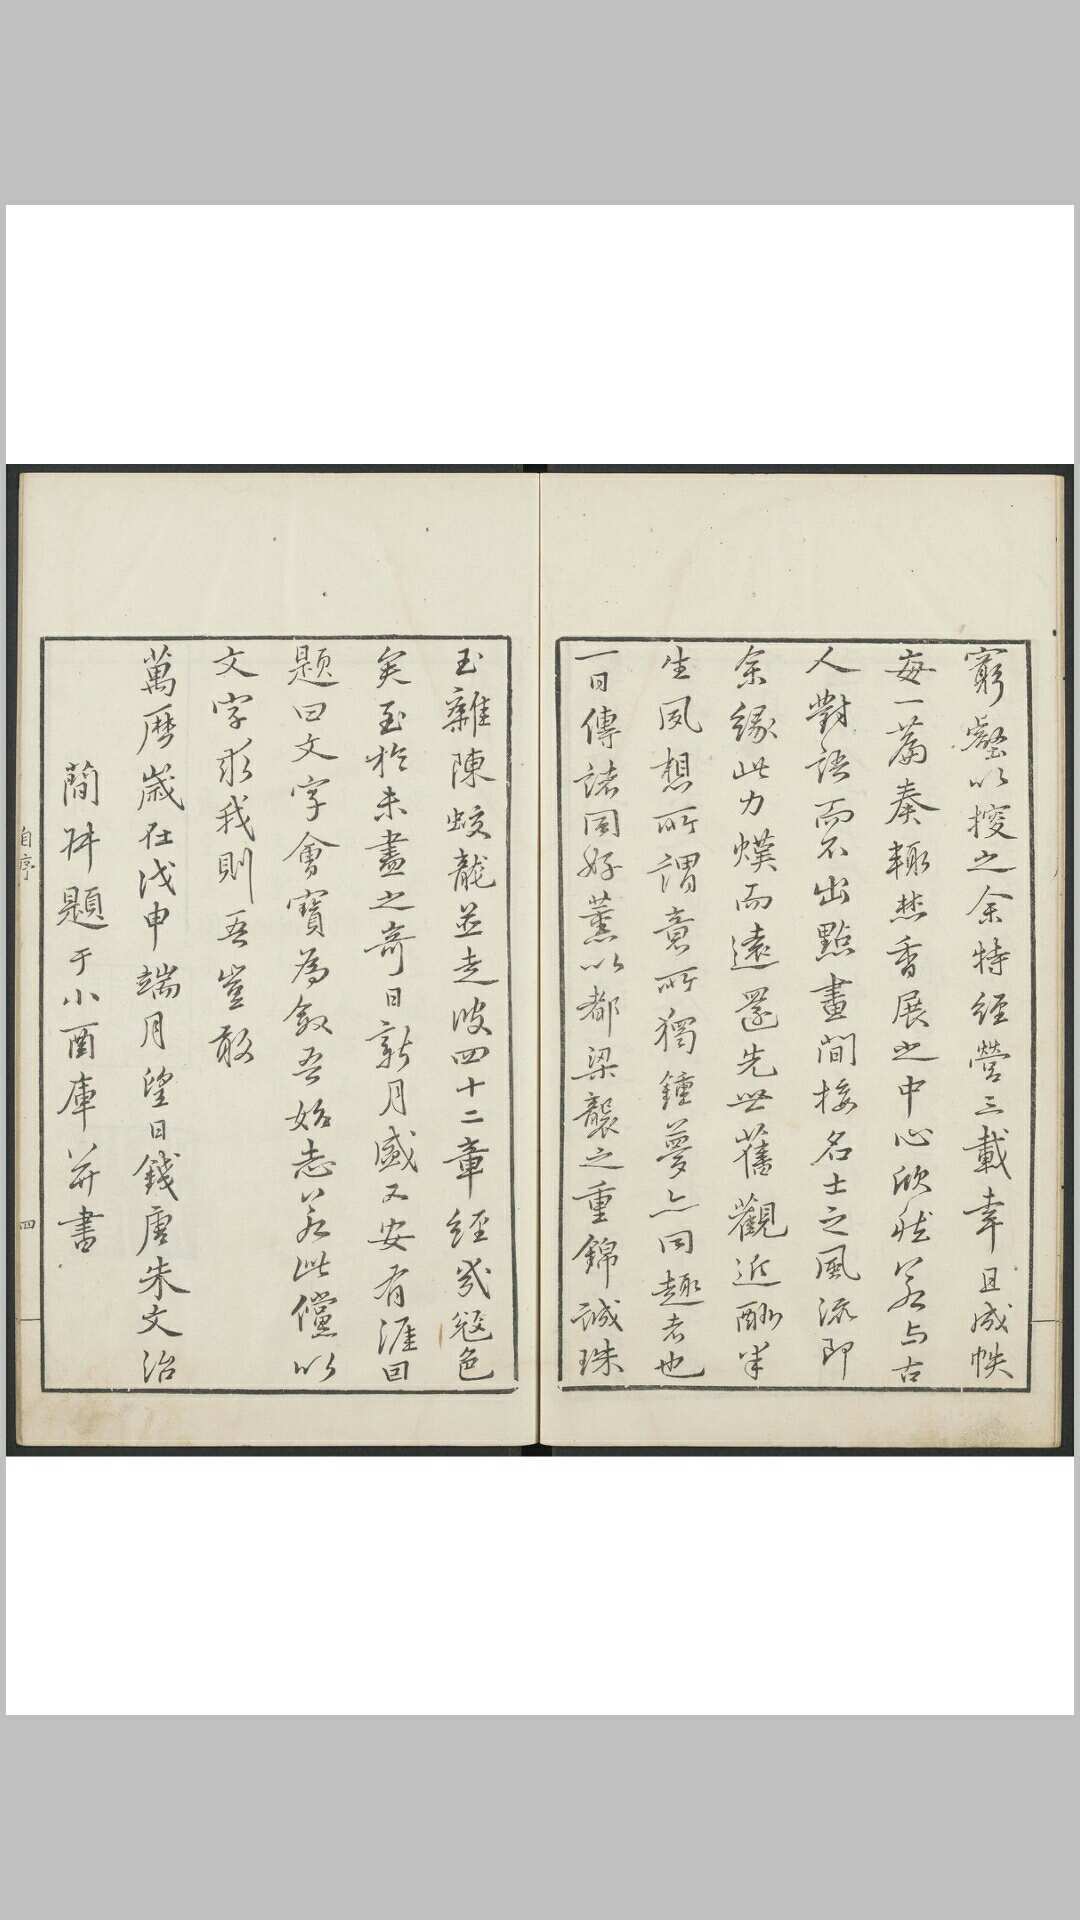 窮壑以搜之余特經營三載幸且成帙
每一篇奏輒焚香展之中心欣然若与古
人對語而不出點畫間接名士之風流即
余緣此力嘆而遠還先世舊觀近酬半
生夙想所謂意所獨鍾夢亦同趣者也
一日傳諸同好薰以都梁襲之重錦誠珠
玉雜陳蛟龍並走彼四十二章經幾寇色
矣至於未盡之奇日新月盛又安有涯因
題曰文字會寶為敘吾始志若此儻以
文字求我則吾豈敢
萬曆歲在戊申端月望日錢唐朱文治
簡叔題于小酉庫并書
自序
四